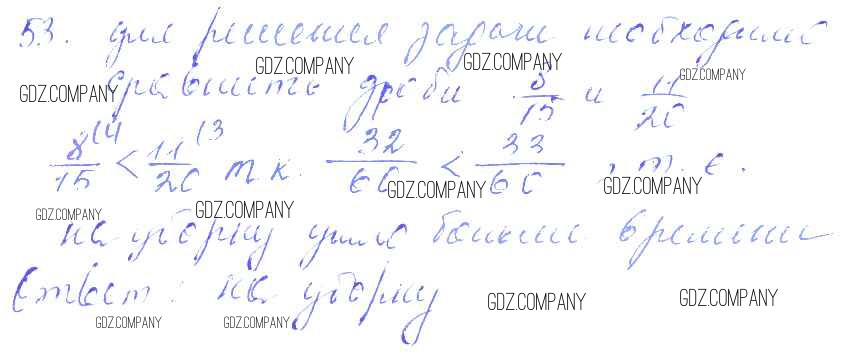 53. Для решения задачи необходимо
GDZ.COMPANY GDZ.COMPANY GDZ.COMPANY
GDZ.COMPANY сравнить дроби 8/15 и 11/20
8/15 (4 < 11/20 (3 т.к. 32/60 < 33/60, т.е.
GDZ.COMPANY GDZ.COMPANY
GDZ.COMPANY GDZ.COMPANY
на уборку ушло больше времени
Ответ: на уборку
GDZ.COMPANY GDZ.COMPANY
GDZ.COMPANY GDZ.COMPANY